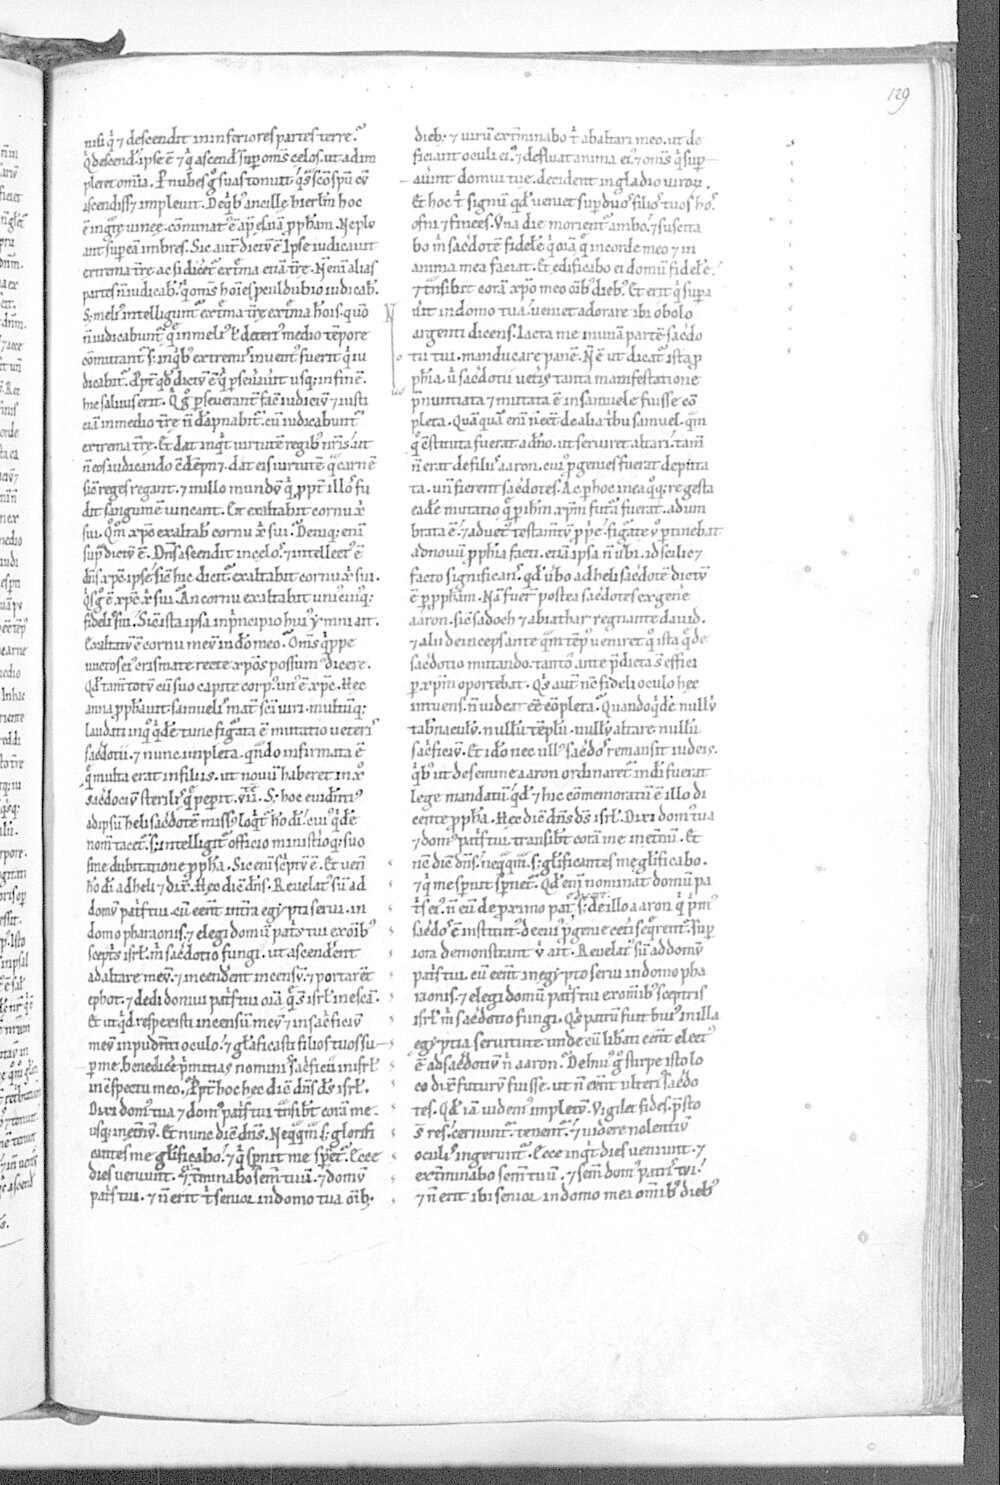 129
nisi q̇ ⁊ descendit in inferiores partes terre.
Q̇ descend̃. ipse ẽ ⁊ q̇ ascend̃ sup om̃s celos. ut adim
pleret om̃ia. P̱ nubes g̊ suas tonuit. q̃s sc̃o sp̃u cũ
ascendiss& impleuit. De q̇b; ancille hierl̃m hoc
ẽ ingr̃te uinee. cominat᷒ ẽ ap̃ esaiã pp̃ham. Ne plu
ant sup eã imbres. Sic aut̃ dictũ ẽ. Ipse iudicauit
extrema tr̃e. ac si dicer& extr̃ma etiã tr̃e. N̄ eni᷒ alias
partes ñ iudicab̃. q̇ om̃s hoi̅es p̱cul dubio iudicab̃.
S; meli᷒ intelligunt᷒ extr̃ma tr̃e extr̃ma hoi̅s. quõ
ñ iudicabunt᷒ q̃ in meli᷒ ł deteri᷒ medio tẽpore
cõmutant᷒ s; in q̇b; extremis inuent᷒ fuerit q̇ iu
dicabit᷒. P̱pt̃ qd̃ dictũ ẽ. q̇ p̱seuerauit usq; in finẽ.
hic saluus erit. Q̇ g̊ p̱seuerant᷒ facit iudiciũ ⁊ iusti
ciã in medio tr̃e ñ dãpnabit᷒. cũ iudicabunt᷒
extrema tr̃e. Et dat inq̇t uirtutẽ regib; nr̃is. ut
ñ eos iudicando cõdẽpn&. dat eis uirtutẽ q̃ carnẽ
sic̃ reges regant. ⁊ in illo mundũ q̇ ppt̃ illos fu
dit sanguinem uincant. Et exaltabit cornu xp̃i
sui. Qm̃ xp̃c exaltab̃ cornu xp̃i sui. De niq; enĩ
sup̱ dictũ ẽ. Dñs ascendit in celos. ⁊ intellect᷒ ẽ
dñs xp̃c. ipse sic̃ hic dicit᷒ exaltabit cornu xp̃i sui.
Q̇s g̊ ẽ xp̃c xp̃i sui. An cornu exaltabit uni᷒ cui᷒q;
fidelis sui. Sic̃ ista ipsa in principio hui᷒ ẏmni ait.
Exaltatũ ẽ cornu meũ in dõ meo. Om̃s q̇ppe
unctos ei᷒ crismate recte xp̃os possum᷒ dicere.
Qd̃ tam̃ totũ cũ suo capite corp᷒ un᷒ ẽ xp̃c. Hec
anna pp̃hauit samuelis mat̃ sc̃i uiri. ⁊ multũ q;
laudati. in q̊ q̇dẽ tunc figurata ẽ mutatio ueteris
sac̃dotii. ⁊ nunc impleta. qñdo infirmata ẽ
q̃ multa erat in filiis. ut nouũ haberet in xp̃o
sac̃dociũ sterilis q̃ pep̱it .vii. S; hoc euident᷒
ad ipsũ heli sac̃dotẽ miss᷒ loq̇t᷒ hõ di̅. cui᷒ q̇dẽ
nom̃ tacet᷒ s; intelligit᷒ officio ministerioq; suo
sine dubitatione pp̃ha. Sic eni᷒ scriptũ ẽ. Et uenit
hõ di̅ ad heli ⁊ dix̃. Hec dic̃ dñs. Reuelat᷒ sũ ad
domũ pat̃s tui. cũ ẽent in t̃ra egẏpti serui. in
domo pharaonis. ⁊ elegi domũ pat̃s tui ex oi̅b;
sceptis isrł. m̃ sac̃dotio fungi. ut ascenderent
ad altare meũ. ⁊ incenderent incensũ. ⁊ portarẽt
ephot. ⁊ dedi domui pat̃s tui oi̅a q̃ s̃t isrł in escã.
Et ut q̇d respexisti in censũ meũ ⁊ in sac̃ficiũ
meũ inpudenti oculo. ⁊ glorificasti filios tuos su
per me. benedicere primitias nominis sac̃ficii in isrł
in cõspectu meo. P̱pt̃ hoc hec dic̃ dñs ds̃ isrł.
Dixi dom᷒ tua ⁊ dom᷒ pat̃s tui trãsib̃t coram me
usq; in et̃nũ. Et nunc dic̃ dñs. Neq̃qm̃ s; glorifi
cantes me glorificabo. ⁊ q̇ spnit me sp̱net᷒. Ecce
dies ueniunt. ⁊ ext̃minabo sem̃ tuũ. ⁊ domũ
pat̃s tui. ⁊ ñ erit t̃ senior in domo tua oi̅b;
dieb;. ⁊ uirũ ext̃minabo t̃ ab altari meo. ut de
ficiant oculi ei᷒. ⁊ defluat anima ei᷒. ⁊ om̃s q̇ sup̱
auint domui tue. decident in gladio uiroꝝ.
Et hoc t̃ signũ qd̃ ueniet sup̱ duos filios tuos hos
ofni ⁊ finees. Una die morient᷒ ambo. ⁊ suscita
bo m̃ sac̃dotẽ fidelẽ. q̇ oi̅a q̃ in corde meo ⁊ in
anima mea faciat. Et edificabo ei domũ fidelẽ.
⁊ t̃nsibit corã xp̃o meo oi̅b; dieb;. Et erit q̇ sup̱a
ũit in domo tua. ueniet adorare ibi obolo
argenti dicens. Iacta me in unã partẽ sac̃do
tii tui. manducare panẽ. N̄ ẽ ut dicat᷒ ista p
phia. u᷒ sac̃dotii ueteris tanta manifestatione
p̃nuntiata ⁊ mutata ẽ in samuele fuisse cõ
pleta. Quãquã enĩ ñ ẽet de alia tribu samuel. q̃m
q̃ cõstituta fuerat a dño. ut seruiret altari. tam̃
ñ erat de filiis aaron. cui᷒ pgenies fuerat deputa
ta. uñ fierent sac̃dotes. Ac p̱ hoc in ea q̊q; re gesta
eadẽ mutatio q̃ p̱ ihm̃ xp̃m futura fuerat. adum
brata ẽ. ⁊ aduet᷒ testam̃tũ pprie. figurate ũ p̱tinebat
ad nouũ pphia facti. etiã ipsa ñ ũbi. id scilic& ⁊
facto significans. qd̃ ũbo ad heli sac̃dotẽ dictũ
ẽ p̱ pp̃ham. Nã fuer̃ postea sac̃dotes ex genere
aaron. sic̃ sadoch ⁊ abiathar regnante dauid.
⁊ alii deinceps ante q̃m tẽp᷒ ueniret. q̊ ista q̃ de
sac̃dotio mutando. tanto ante p̃dicta s̃t effici
p̱ xp̃m oportebat. Q̇s aut̃ nc̃ fideli oculo hec
intuens. ñ uideat ẽe cõpleta. Quando q̇dẽ nullũ
tab̃naculũ. nullũ tẽplũ. nullũ altare nullũ
sac̃ficiũ. Et idõ nec ull᷒ sac̃dos remansit iudeis.
q̇b; ut de semine aaron ordinaret᷒ in di̅ fuerat
lege mandatũ. qd̃ ⁊ hic cõmemoratũ ẽ illo di
cente pp̃ha. Hec dic̃ dñs ds̃ isrł. Dixi dom᷒ tua
⁊ dom᷒ pat̃s tui. transib̃t corã me in et̃nũ. Et
nc̃ dic̃ dñs. neq̃qm̃. s; glorificantes me glorificabo.
⁊ q̇ me sp̱nit sp̱net᷒. Qd̃ enĩ nominat domũ pa
t̃s ei᷒. ñ eũ de proximo pat̃. s; de illo aaron q̇ prim᷒
sac̃dos ẽ institut᷒. de cui᷒ pgenie cet̃i seq̃rent᷒. sup̱i
iora demonstrant ũ ait. Reuelat᷒ sũ ad domũ
pat̃s tui. cũ ẽent in egẏpto serui in domo pha
raonis. ⁊ elegi domũ pat̃s tui ex om̃ib; sceptris
isrł m̃ sac̃dotio fungi. Q̇s patrũ fuit hui᷒ in illa
egẏptia seruitute. unde cũ libati ẽent elect᷒
ẽ ad sac̃dotiũ ñ aaron. De hui᷒ g̊ stirpe isto lo
co dix̃ futurũ fuisse. ut ñ ẽent ulteri᷒ sac̃do
tes. Qd̃ iã uidem᷒ impletũ. Vigilet fides. p̃sto
s̃t res. cernunt᷒. tenent᷒. ⁊ uidere nolentiũ
oculis ingerunt᷒. Ecce inq̇t dies ueniunt. ⁊
ext̃minabo sem̃ tuũ. ⁊ sem̃ dom᷒ patris tui.
⁊ ñ erit ibi senior in domo mea om̃ib; dieb;